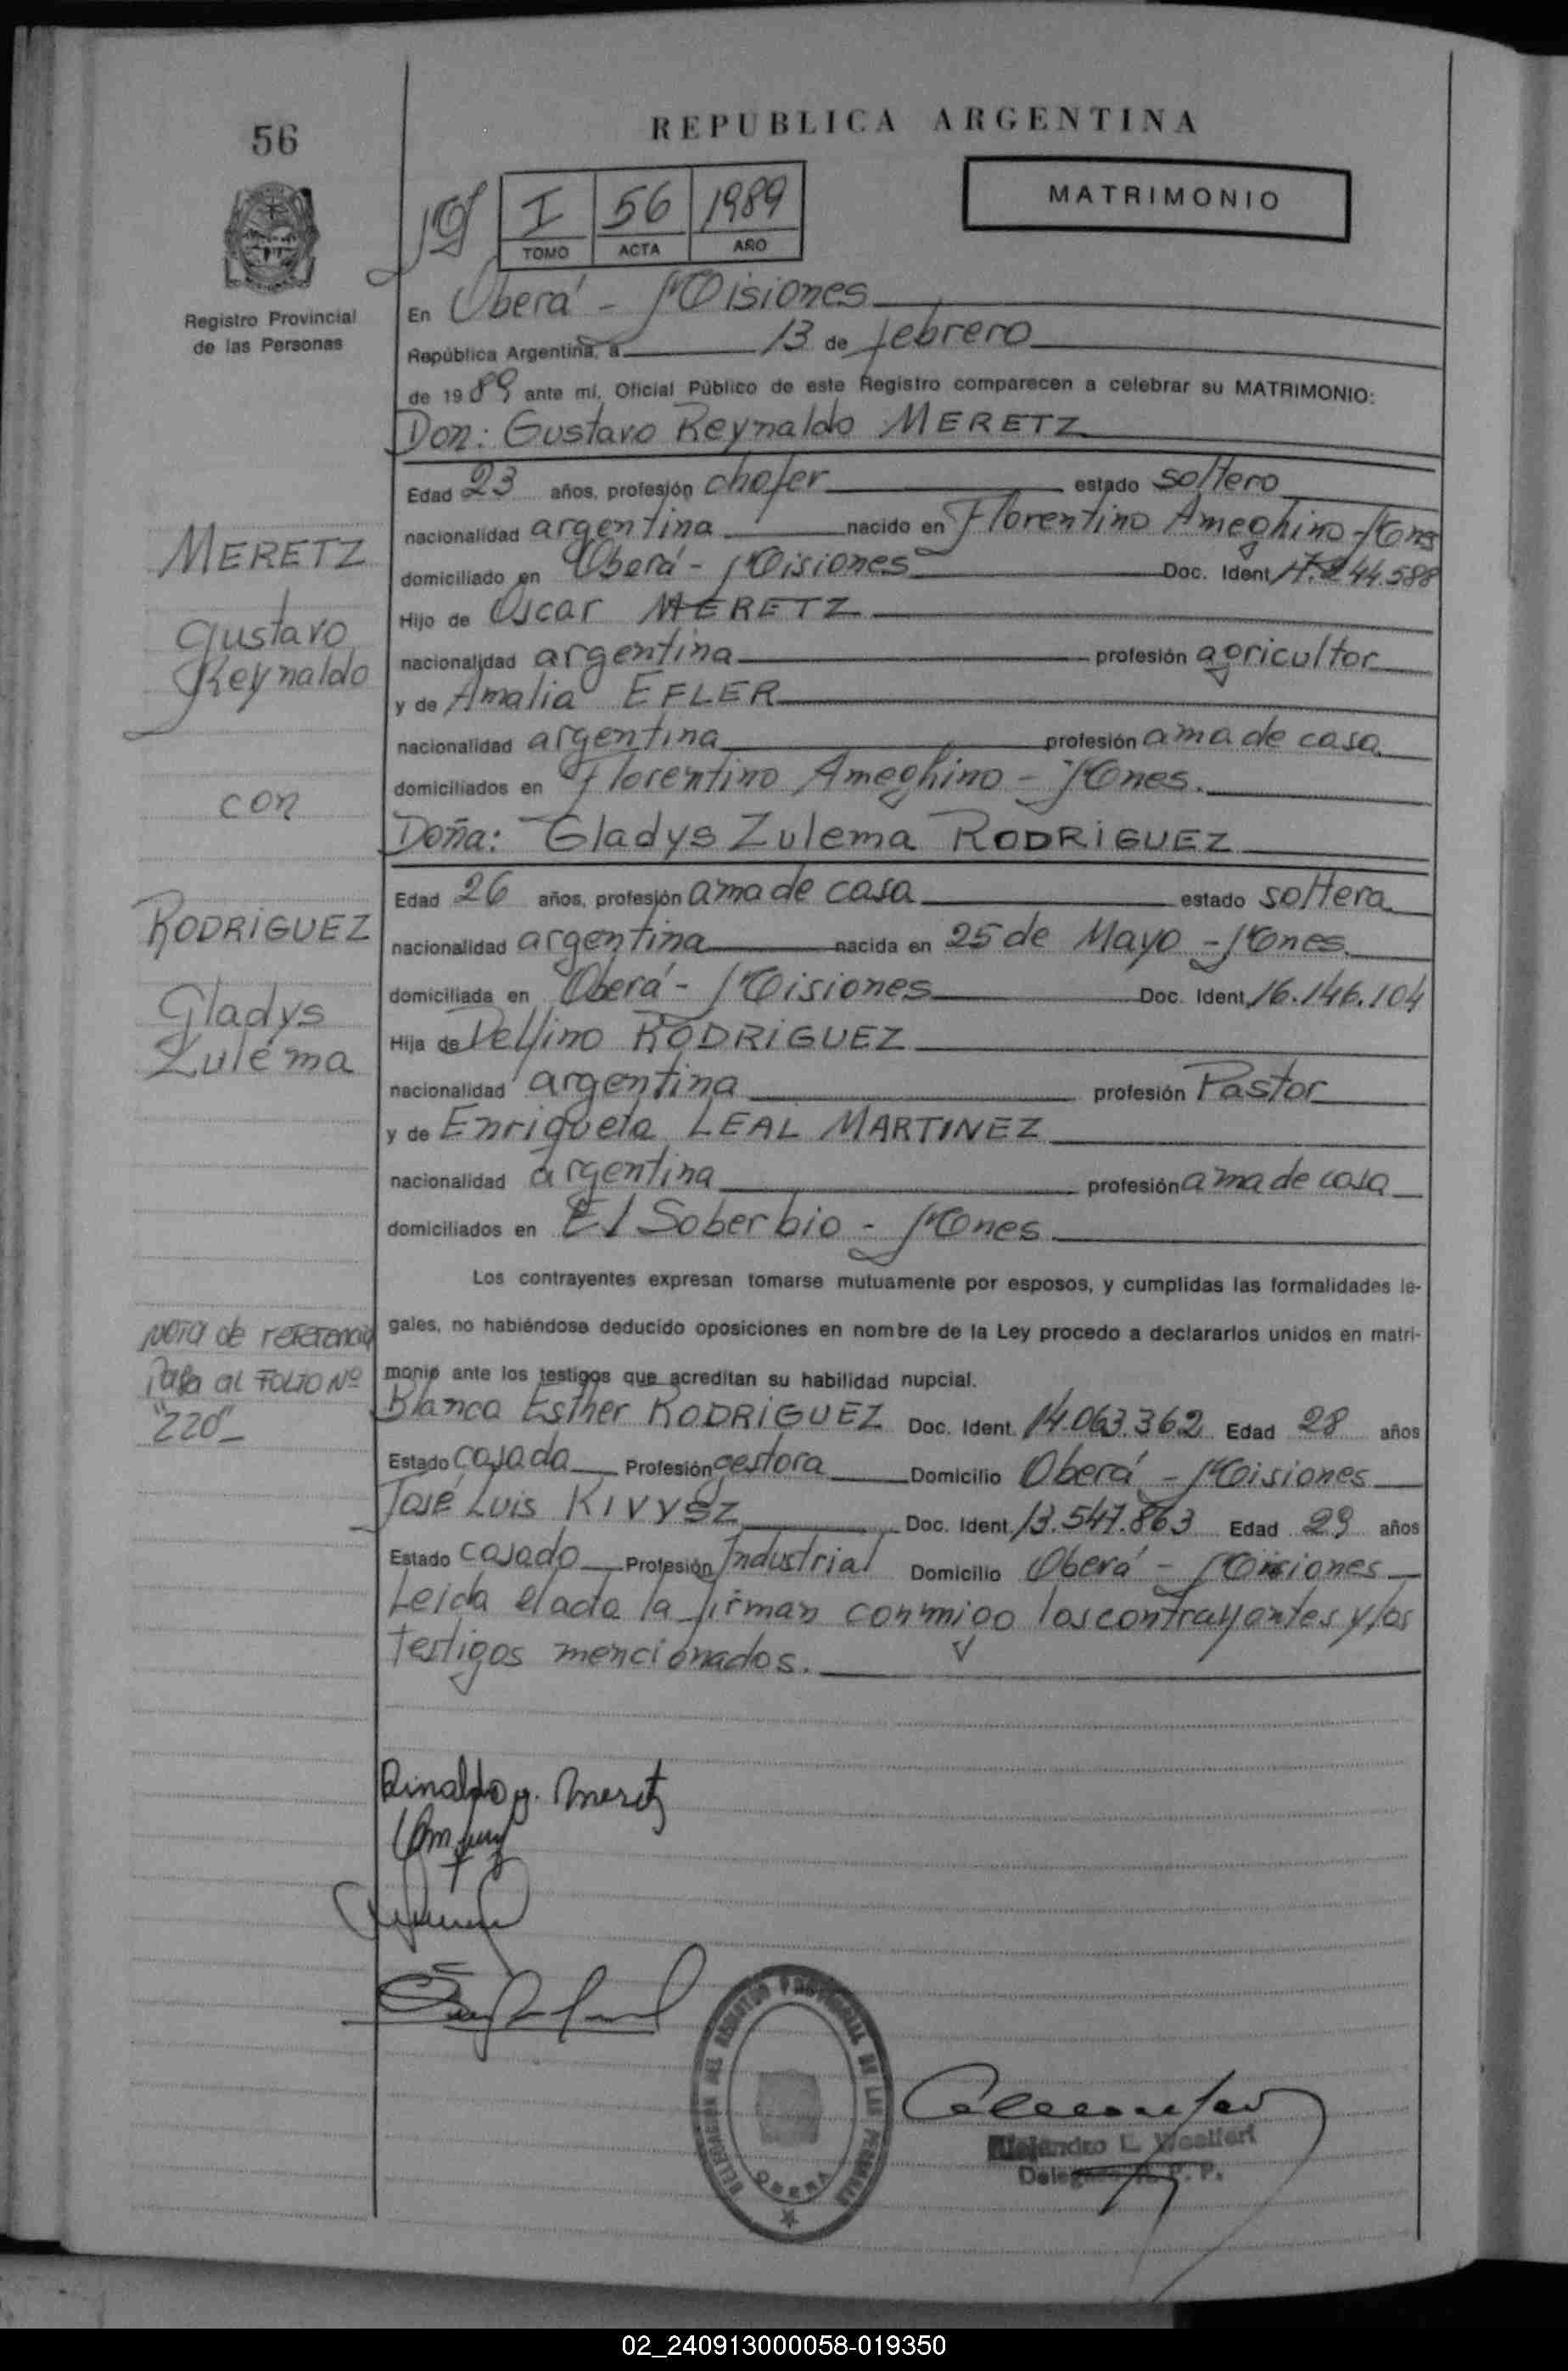 REPUBLICA ARGENTINA
56
MATRIMONIO
I 56 1989
TOMO ACTA AÑO
Registro Provincial
de las Personas
En Oberá - Misiones
República Argentina, a 13 de febrero
de 1989 ante mí, Oficial Público de este Registro comparecen a celebrar su MATRIMONIO:
Don: Gustavo Reynaldo MERETZ
Edad 23 años, profesión chofer estado soltero
nacionalidad argentina nacido en Florentino Ameghino - Mnes
domiciliado en Oberá - Misiones Doc. Ident. 17.244.588
Hijo de Oscar MERETZ
nacionalidad argentina profesión agricultor
y de Amalia EFLER
nacionalidad argentina profesión ama de casa
domiciliados en Florentino Ameghino - Mnes.
Doña: Gladys Zulema RODRIGUEZ
Edad 26 años, profesión ama de casa estado soltera
nacionalidad argentina nacida en 25 de Mayo - Mnes
domiciliada en Oberá - Misiones Doc. Ident. 16.146.104
Hija de Delfino RODRIGUEZ
nacionalidad argentina profesión Pastor
y de Enriqueta LEAL MARTINEZ
nacionalidad argentina profesión ama de casa
domiciliados en El Soberbio - Mnes
Los contrayentes expresan tomarse mutuamente por esposos, y cumplidas las formalidades le-
gales, no habiéndose deducido oposiciones en nombre de la Ley procedo a declararlos unidos en matri-
monio ante los testigos que acreditan su habilidad nupcial.
Blanca Esther RODRIGUEZ Doc. Ident. 14.063.362 Edad 28 años
Estado casada Profesión gestora Domicilio Oberá - Misiones
José Luis KIVYSZ Doc. Ident. 13.547.863 Edad 29 años
Estado casado Profesión Industrial Domicilio Oberá - Misiones
Leida el acta la firman conmigo los contrayentes y los
testigos mencionados.
MERETZ
Gustavo
Reynaldo
con
RODRIGUEZ
Gladys
Zulema
nota de referencia
Pasa al FOLIO Nº
"220"_
Rinaldo g. Meretz
DELEGACION DEL REGISTRO PROVINCIAL DE LAS PERSONAS
OBERA
Alejandro L.
Delegado R. P. P.
02_240913000058-019350